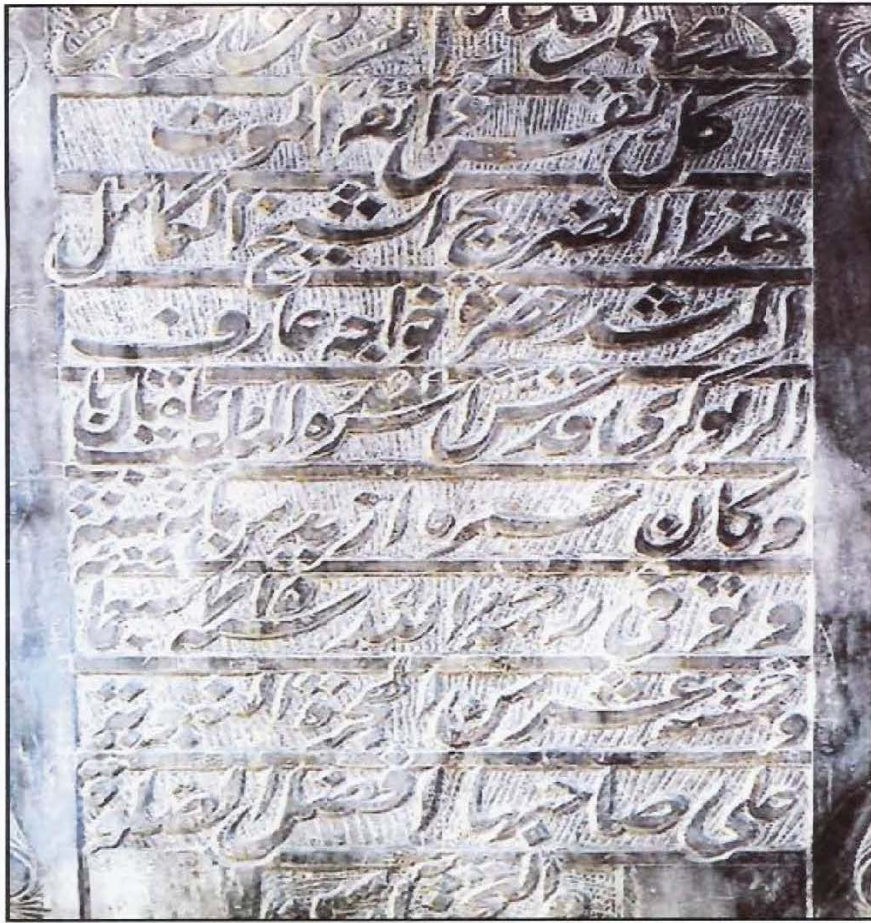 كل نفس ذائقة الموت
هذا الضريح الشيخ الكامل
المرشد حضرة خواجه عارف
الريوكرى قدس الله سره الملقب بماه تابان
وكان عمره ازيد من مائة سنة
وتوفى رحمه الله سنة
وخمسة عشر من الهجرة النبوية
على صاحبها افضل الصلوة